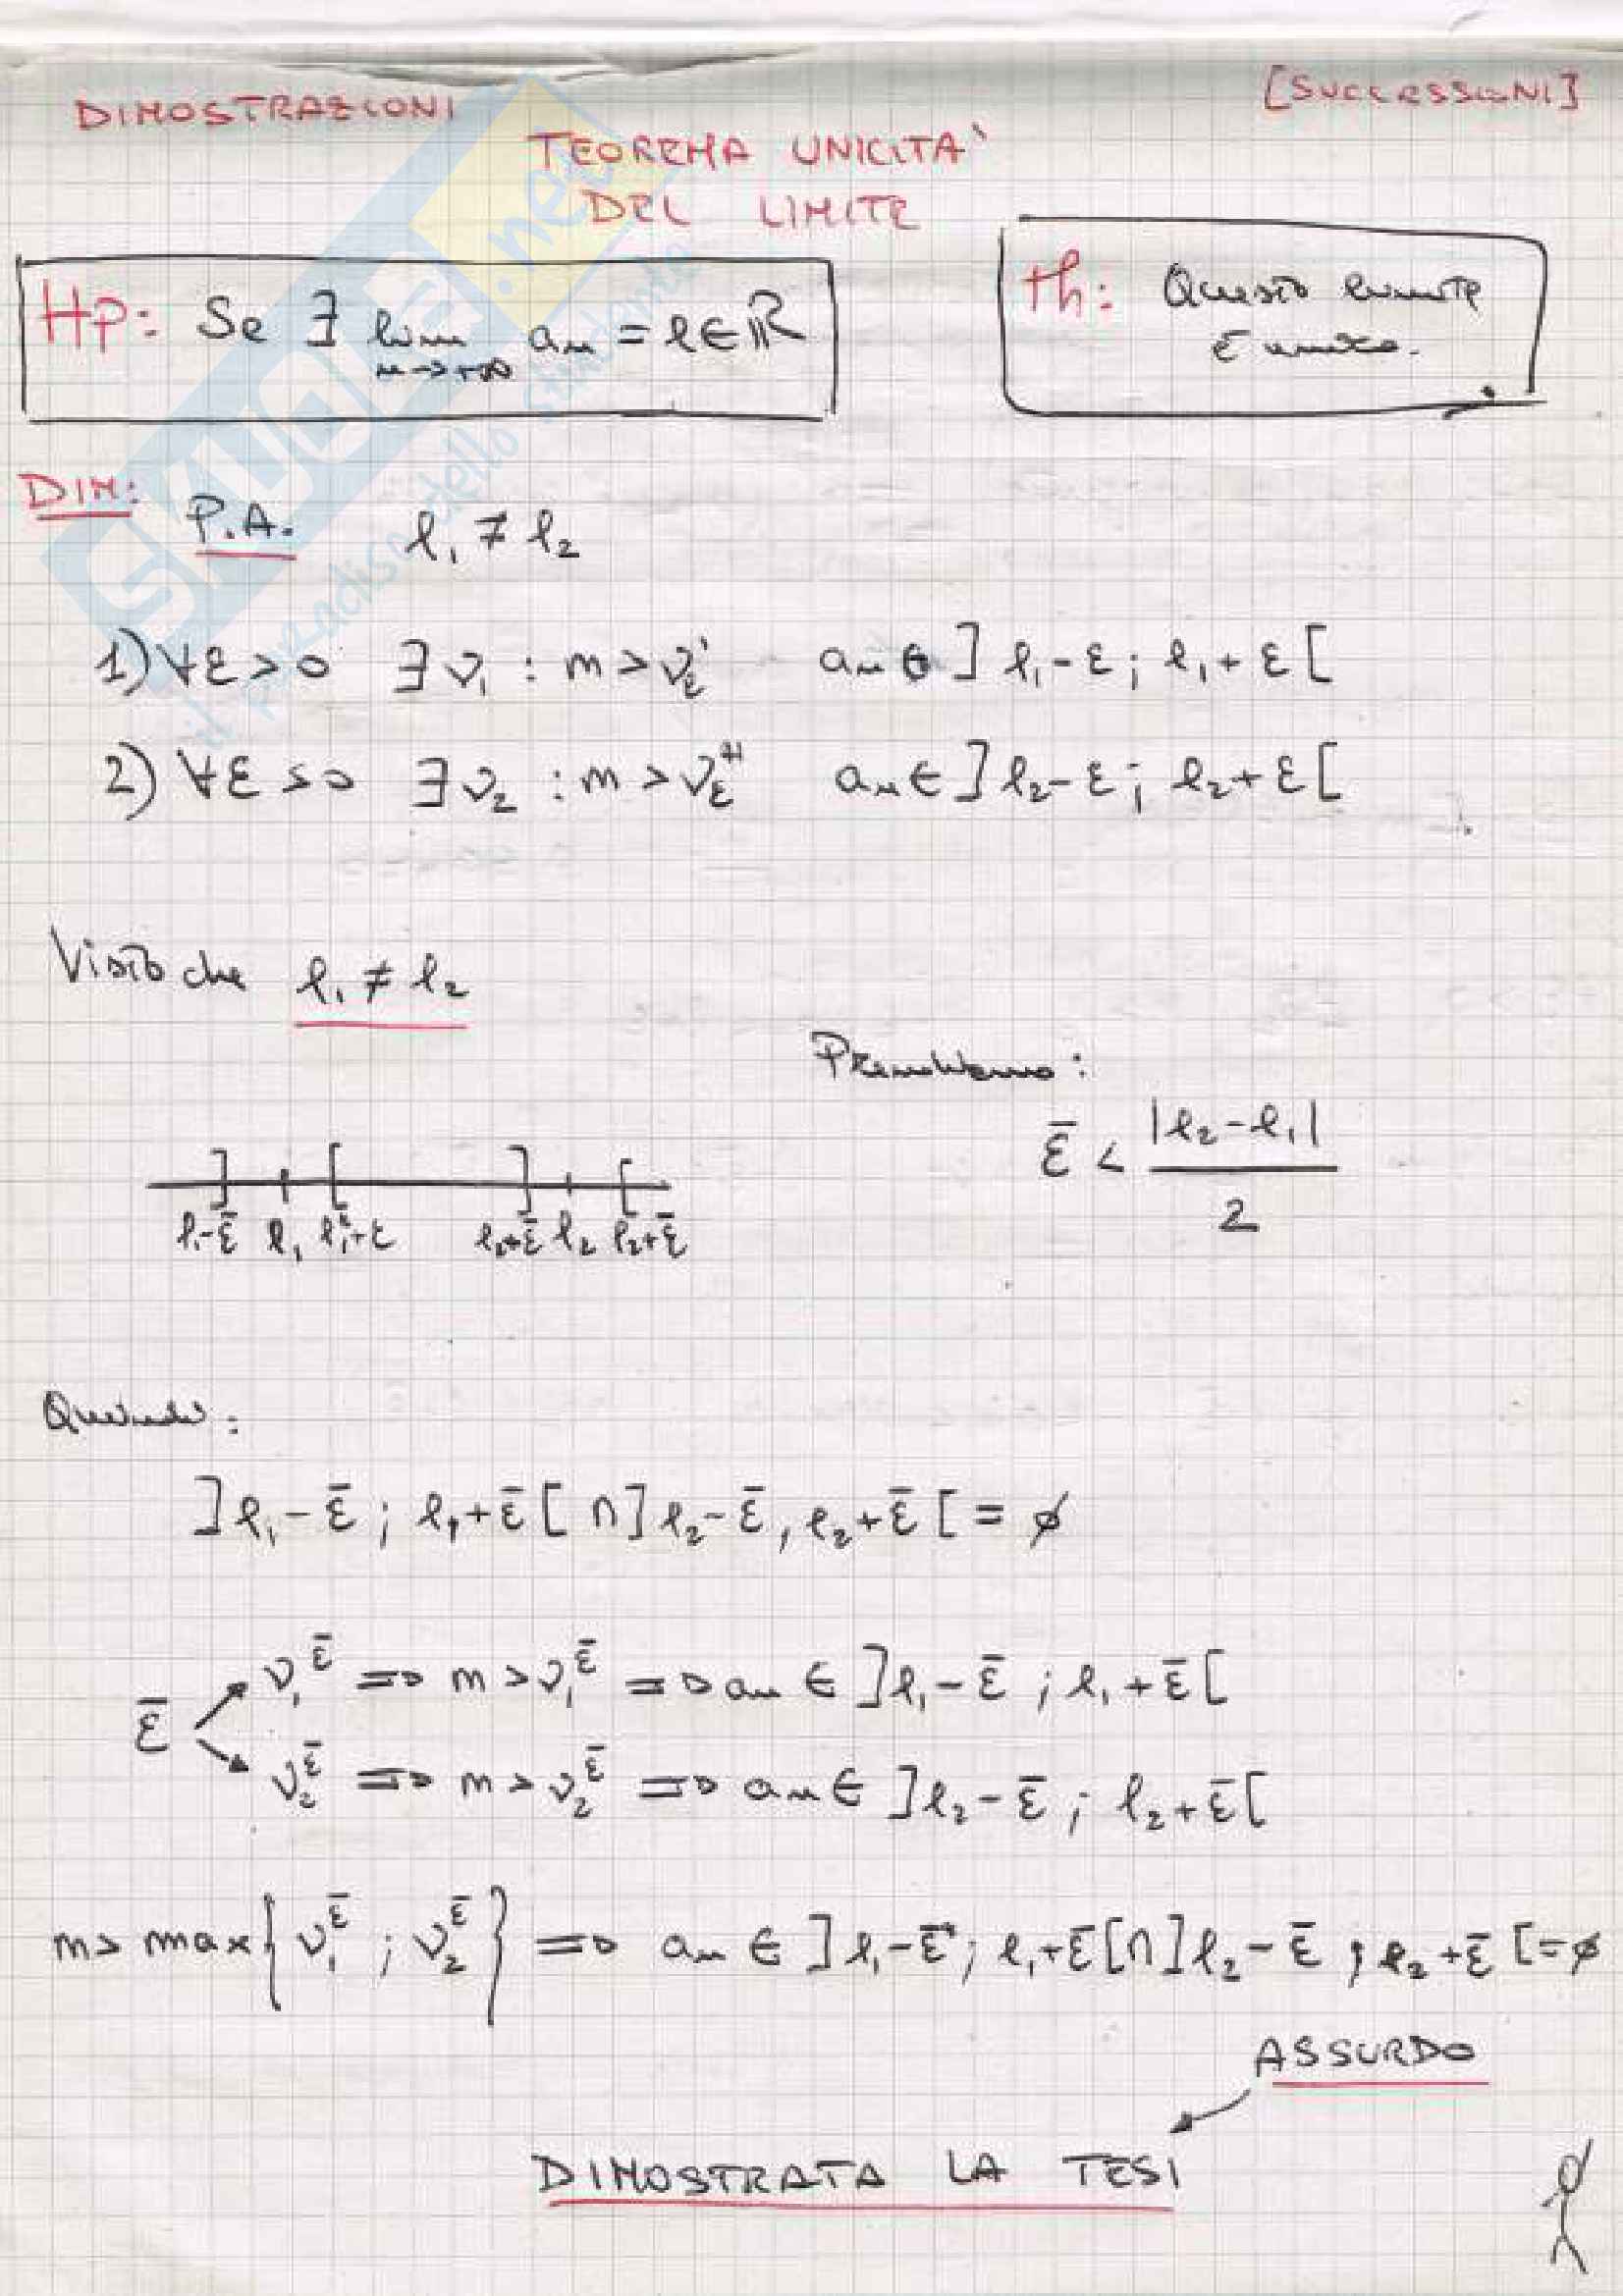 DIMOSTRAZIONI
[SUCCESSIONI]
TEOREMA UNICITA'
DEL LIMITE
Hp: Se ∃ lim aₙ = l ∈ ℝ
n→+∞
th: Questo limite
È unico.
DIM:
P.A. l₁ ≠ l₂
1) ∀ε>0 ∃ν₁ : n > ν'_ε aₙ ∈ ] l₁-ε ; l₁+ε [
2) ∀ε>0 ∃ν₂ : n > ν''_ε aₙ ∈ ] l₂-ε ; l₂+ε [
Visto che l₁ ≠ l₂
Prendiamo:
ε̄ < |l₂-l₁|
2
l₁-ε̄ l₁ l₁+ε l₂+ε̄ l₂ l₂+ε̄
Quindi:
] l₁-ε̄ ; l₁+ε̄ [ ∩ ] l₂-ε̄ , l₂+ε̄ [ = ∅
ν₁^ε̄ ⇒ n > ν₁^ε̄ ⇒ aₙ ∈ ] l₁-ε̄ ; l₁+ε̄ [
ε̄
ν₂^ε̄ ⇒ n > ν₂^ε̄ ⇒ aₙ ∈ ] l₂-ε̄ ; l₂+ε̄ [
n > max { ν₁^ε̄ ; ν₂^ε̄ } ⇒ aₙ ∈ ] l₁-ε̄ ; l₁+ε̄ [ ∩ ] l₂-ε̄ ; l₂+ε̄ [ = ∅
ASSURDO
DIMOSTRATA LA TESI
SKUOLA.net
il paradiso dello studente